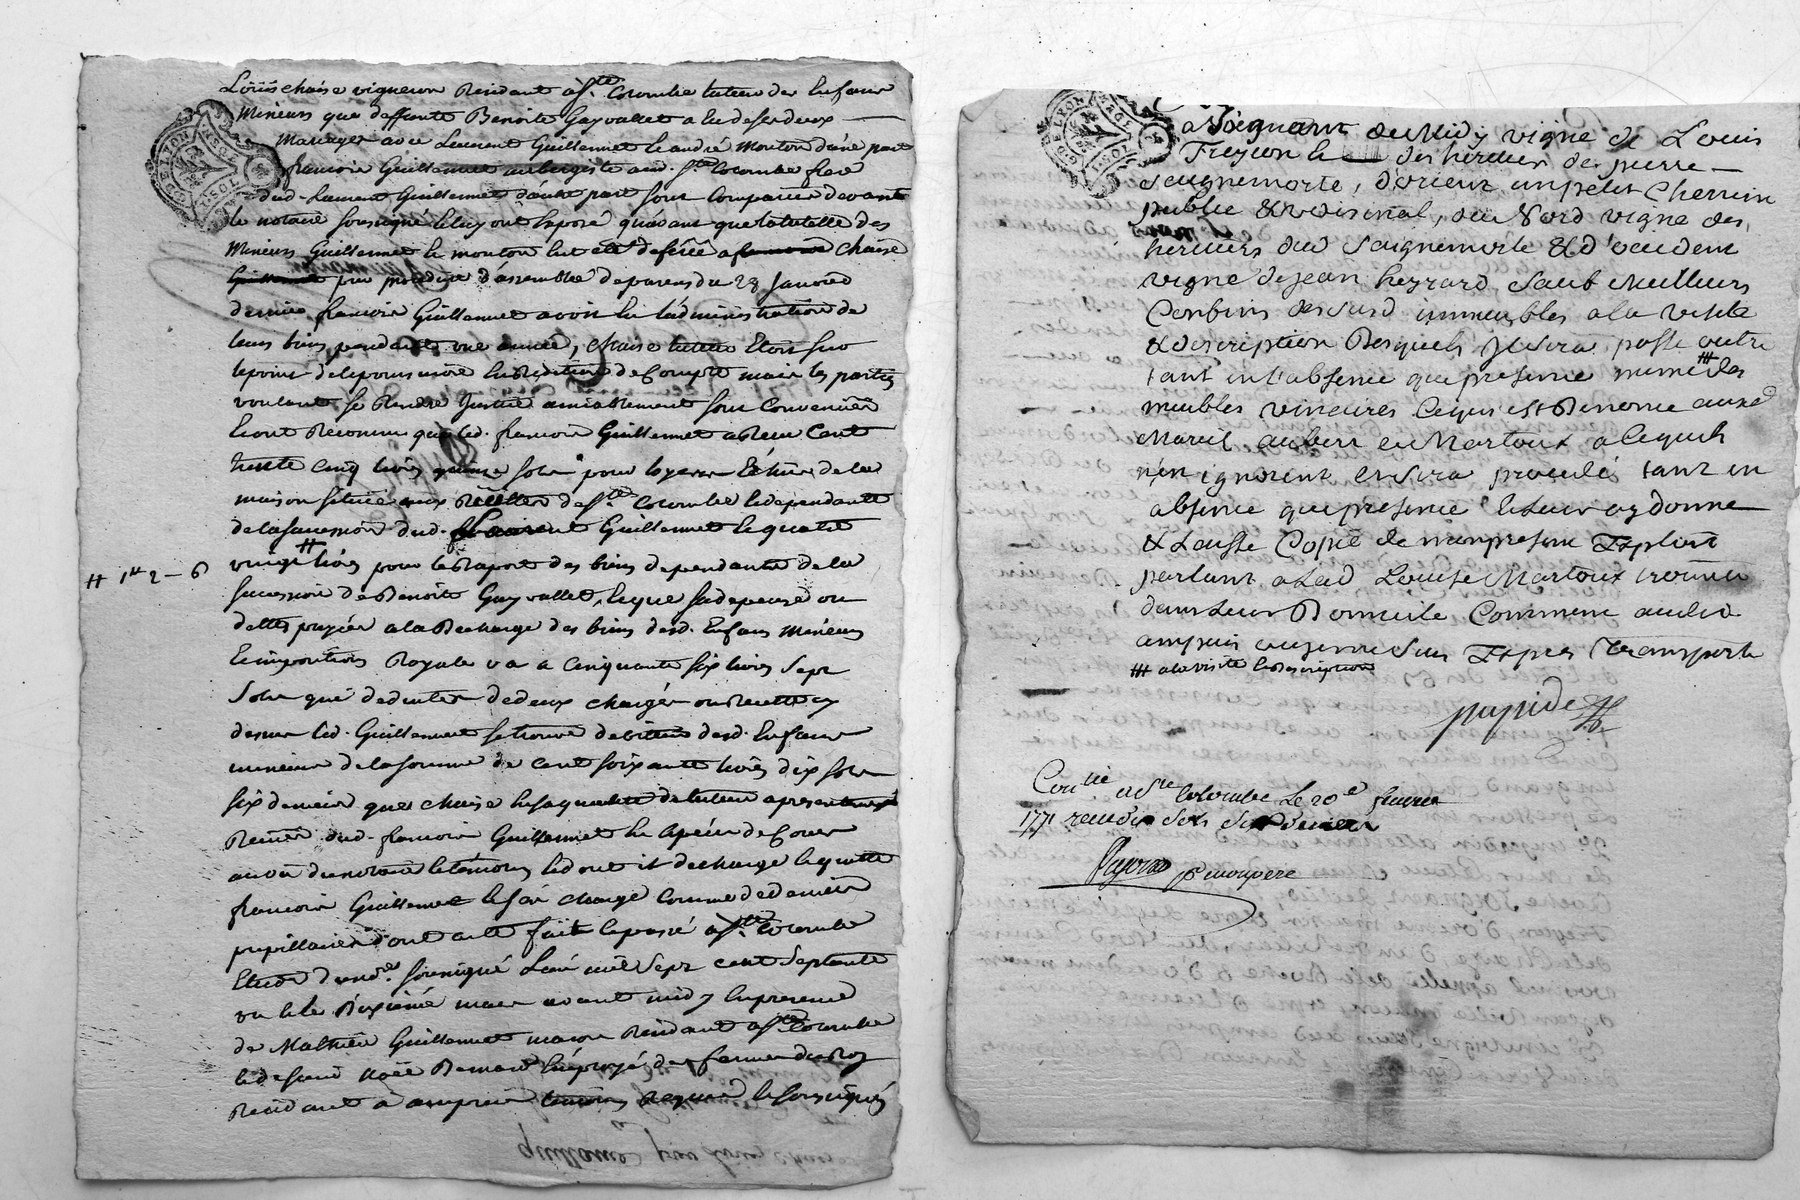 Louis chaise vigneron Residant a Ste. Colombe tuteur des Enfans
Mineurs que deffunte Benoite Gayvallet a eu de ses deux
Mariages avec Laurent Guillermet & andré Mouton d'une part
françois Guillermet aubergiste aud. Ste Colombe frere
dud. Laurent Guillermet d'autre part sont Comparus devant
le notaire soussigné & luy ont Exposé qu'avant que la tutelle des
Mineurs Guillermet & mouton eut été deferée a chaise
par procedure d'assemblée de parens du 28 Janvier
dernier françois Guillermet avoit eu l'administration de
leurs biens pendant une année, chaise tuteur Etoit sur
le point de le poursuivre En Reddition de Compte mais les parties
voulant se Rendre Justice amiablement sont Convenues
& ont Reconnu que led. françois Guillermet a Reçu Cent
trente Cinq livres quinze sols pour loyer de la
maison située aux de Ste. Colombe & dependante
de la succession dud. Laurent Guillermet & quatre
vingt livres pour le Raport des biens dependants de la
# 1 2 - 6
succession de Benoite Gayvallet, & que sa depense ou
dettes payées a la Decharge des biens desd. Enfans Mineurs
& impositions Royales va a Cinquante six livres sept
sols que deduites de deux charges ou Recettes cy
dessus led. Guillermet se trouve debiteur desd. Enfans
mineurs de la somme de cent soixante livres dix sols
six deniers que chaise En sa qualité de tuteur a presentement
Reçue dud. françois Guillermet En Especes de Cours
au vû du notaire & temoins & dont il decharge & quitte
françois Guillermet & s'en charge Comme de deniers
pupillaires dont acte fait & passé a Ste. Colombe
Etude dud. nore. soussigné L'an mil Sept cent Septante
un & le Dixième mars avant midy En presence
de Mathieu Guillermet maçon Residant a Ste Colombe
& de sieur noël Bernard Employé des fermes du Roy
Residant a ampuis temoins Requis & soussignés
a Joignant du Midy vigne de Louis
Treyion & des heritiers de pierre
Saignemorte, d'orient un petit Chemin
public & voisinal, du Nord vigne des
heritiers dud Saignemorte & d'occident
vigne de jean heyrard, Sauf Meilleurs
Confins desusd immeubles a la visite
& description Desquels il sera passé outre
tant en l'absence que presence # des
meubles vinaires Ce qui est Denoncé auxd
Mariés aubert & Martoux a ce quils
n'en ignorent & sera procedé tant en
absence que presence & Leur ay donné
& Laissé Copie de mon present Exploit
parlant a Lad Louise Martoux trouvée
dans Leur Domicile Comment audit
ampuis ou je me suis Expres Transporté
# a la visite & Description
pupide
Con.lle a Ste Colombe Le 20e fevrier
1771 reçu dix sols six deniers